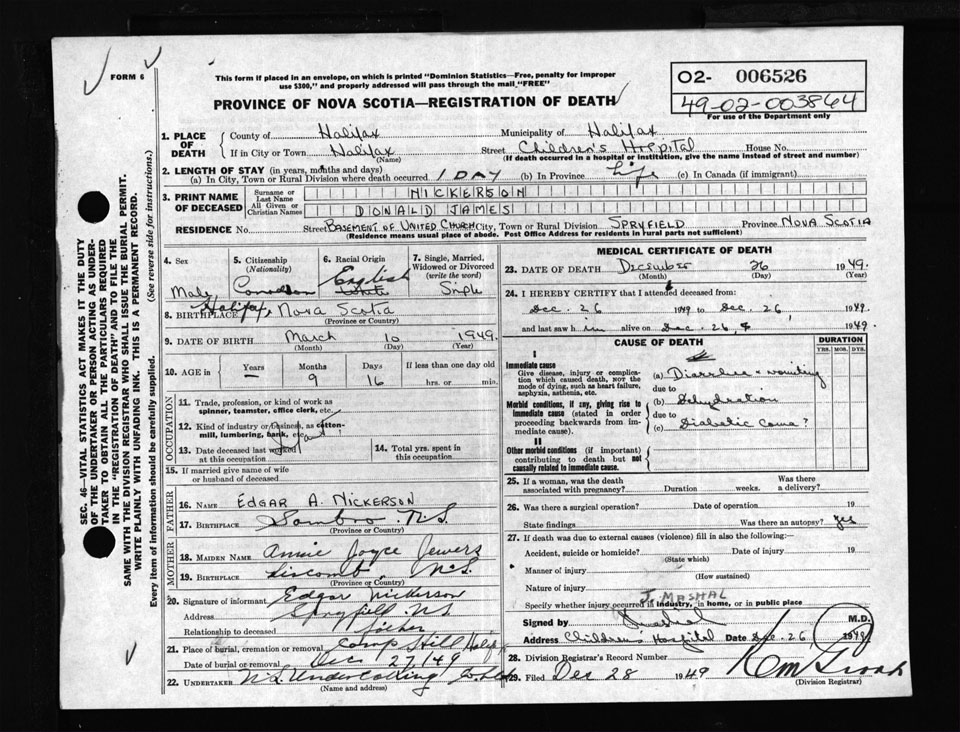 FORM 6
This form if placed in an envelope, on which is printed "Dominion Statistics—Free, penalty for improper
use $300," and properly addressed will pass through the mail "FREE"
PROVINCE OF NOVA SCOTIA—REGISTRATION OF DEATH
O2- 006526
49-02-003864
For use of the Department only
1. PLACE OF DEATH
County of Halifax Municipality of Halifax
If in City or Town Halifax Street Children's Hospital House No.
(Name) (If death occurred in a hospital or institution, give the name instead of street and number)
2. LENGTH OF STAY (in years, months and days)
(a) In City, Town or Rural Division where death occurred 1 DAY (b) In Province Life (c) In Canada (if immigrant)
3. PRINT NAME OF DECEASED
Surname or Last Name NICKERSON
All Given or Christian Names DONALD JAMES
RESIDENCE No. Street BASEMENT OF UNITED CHURCH City, Town or Rural Division SPRYFIELD Province NOVA SCOTIA
(Residence means usual place of abode. Post Office Address for residents in rural parts not sufficient)
4. Sex
Male
5. Citizenship
(Nationality)
Canadian
6. Racial Origin
English
white
7. Single, Married,
Widowed or Divorced
(write the word)
Single
8. BIRTHPLACE Halifax, Nova Scotia
(Province or Country)
9. DATE OF BIRTH March 10 1949
(Month) (Day) (Year)
10. AGE in
Years Months Days If less than one day old
— 9 16 hrs. or min.
OCCUPATION
11. Trade, profession, or kind of work as
spinner, teamster, office clerk, etc.
12. Kind of industry or business, as cotten-
mill, lumbering, bank, etc.
13. Date deceased last worked
at this occupation
14. Total yrs. spent in
this occupation
15. If married give name of wife
or husband of deceased
FATHER
16. NAME EDGAR A. NICKERSON
17. BIRTHPLACE Sambro N.S.
(Province or Country)
MOTHER
18. MAIDEN NAME Annie Joyce Jewers
19. BIRTHPLACE Liscomb, N.S.
(Province or Country)
20. Signature of informant Edgar Nickerson
Address Spryfield N.S.
Relationship to deceased father
21. Place of burial, cremation or removal Camp Hill Halifax
Date of burial or removal Dec 27/49
22. UNDERTAKER N.S. Undertaking
(Name and address)
MEDICAL CERTIFICATE OF DEATH
23. DATE OF DEATH December 26 1949.
(Month) (Day) (Year)
24. I HEREBY CERTIFY that I attended deceased from:
Dec. 26 1949 to Dec. 26, 1949.
and last saw him alive on Dec. 26, 1949.
CAUSE OF DEATH
DURATION
YRS. MOS. DYS.
I
Immediate cause
Give disease, injury or complica-
tion which caused death, NOT the
mode of dying, such as heart failure,
asphyxia, asthenia, etc.
(a) Diarrhea & vomiting
due to
Morbid conditions, if any, giving rise to
immediate cause (stated in order
proceeding backwards from im-
mediate cause).
(b) Dehydration
due to
(c) Diabetic Coma?
II
Other morbid conditions (if important)
contributing to death but not
causally related to immediate cause.
25. If a woman, was the death
associated with pregnancy? Duration weeks. Was there
a delivery?
26. Was there a surgical operation? Date of operation 19
State findings Was there an autopsy? yes
27. If death was due to external causes (violence) fill in also the following:—
Accident, suicide or homicide? Date of injury 19
(State which)
Manner of injury
(How sustained)
Nature of injury
J. MASHAL
Specify whether injury occurred in industry, in home, or in public place
Signed by J. Mashal M.D.
Address Children's Hospital Date Dec. 26 1949
28. Division Registrar's Record Number
29. Filed Dec 28 1949
(Division Registrar)
SEC. 46—VITAL STATISTICS ACT MAKES IT THE DUTY
OF THE UNDERTAKER OR PERSON ACTING AS UNDER-
TAKER TO OBTAIN ALL THE PARTICULARS REQUIRED
IN THE "REGISTRATION OF DEATH" AND TO FILE THE
SAME WITH THE DIVISION REGISTRAR WHO SHALL ISSUE THE BURIAL PERMIT.
WRITE PLAINLY WITH UNFADING INK. THIS IS A PERMANENT RECORD.
Every item of information should be carefully supplied. (See reverse side for instructions.)